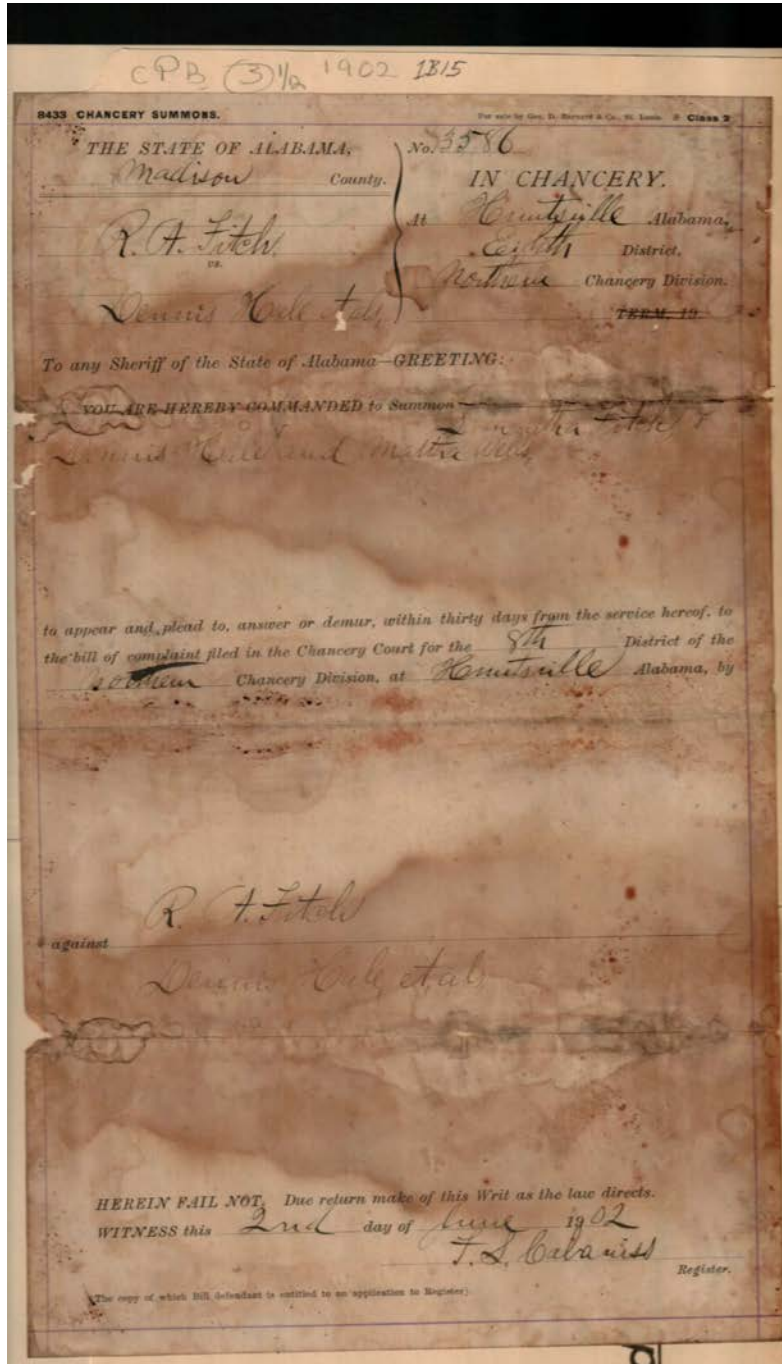 CPB (3) 1/2 1902 1B15
8433 CHANCERY SUMMONS. For sale by Geo. D. Barnard & Co., St. Louis. Class 2
THE STATE OF ALABAMA, No. 3586
Madison County. IN CHANCERY.
At Huntsville Alabama,
R. A. Fitch Eighth District.
vs. Northern Chancery Division.
Dennis Hale et als TERM, 19
To any Sheriff of the State of Alabama—GREETING:
YOU ARE HEREBY COMMANDED to Summon
Fitch &
Dennis Hale and
to appear and plead to, answer or demur, within thirty days from the service hereof, to
the bill of complaint filed in the Chancery Court for the 8th District of the
Northern Chancery Division, at Huntsville Alabama, by
R. A. Fitch
against
Dennis Hale et als
HEREIN FAIL NOT, Due return make of this Writ as the law directs.
WITNESS this 2nd day of June 1902
F. S. Cabaniss
Register.
(The copy of which Bill defendant is entitled to on application to Register)